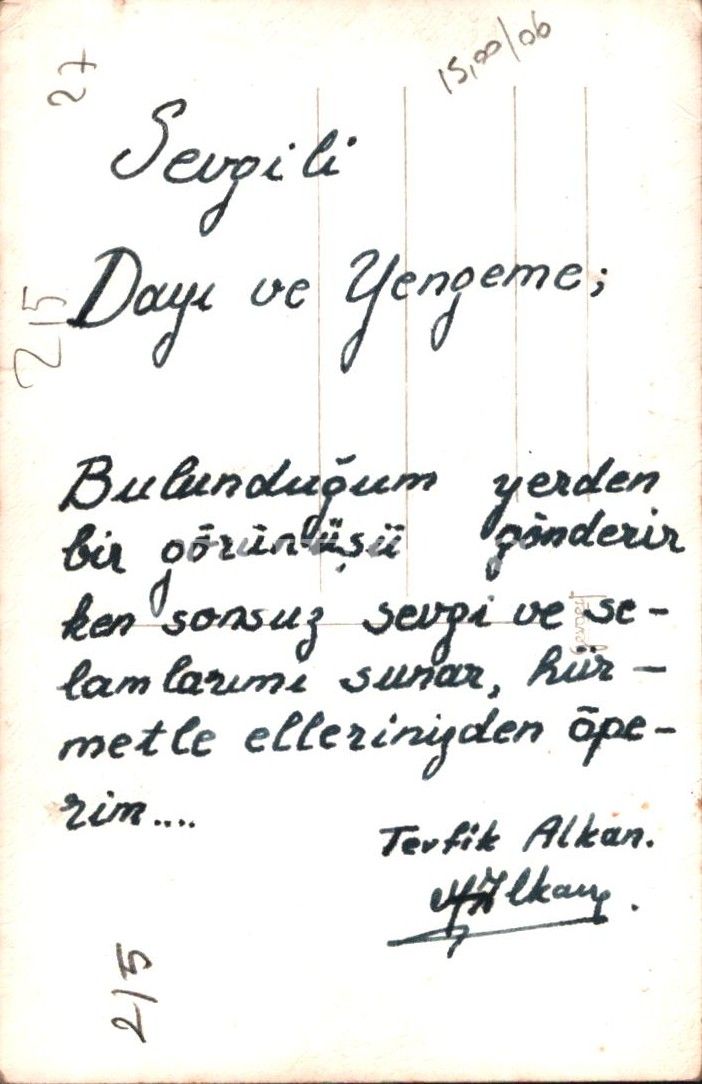 15,00/06
27
Sevgili
Dayı ve Yengeme;
215
Bulunduğum yerden
bir görünüşü gönderir
ken sonsuz sevgi ve se-
lamlarımı sunar, hür-
metle ellerinizden öpe-
rim....
Tevfik Alkan.
2/5